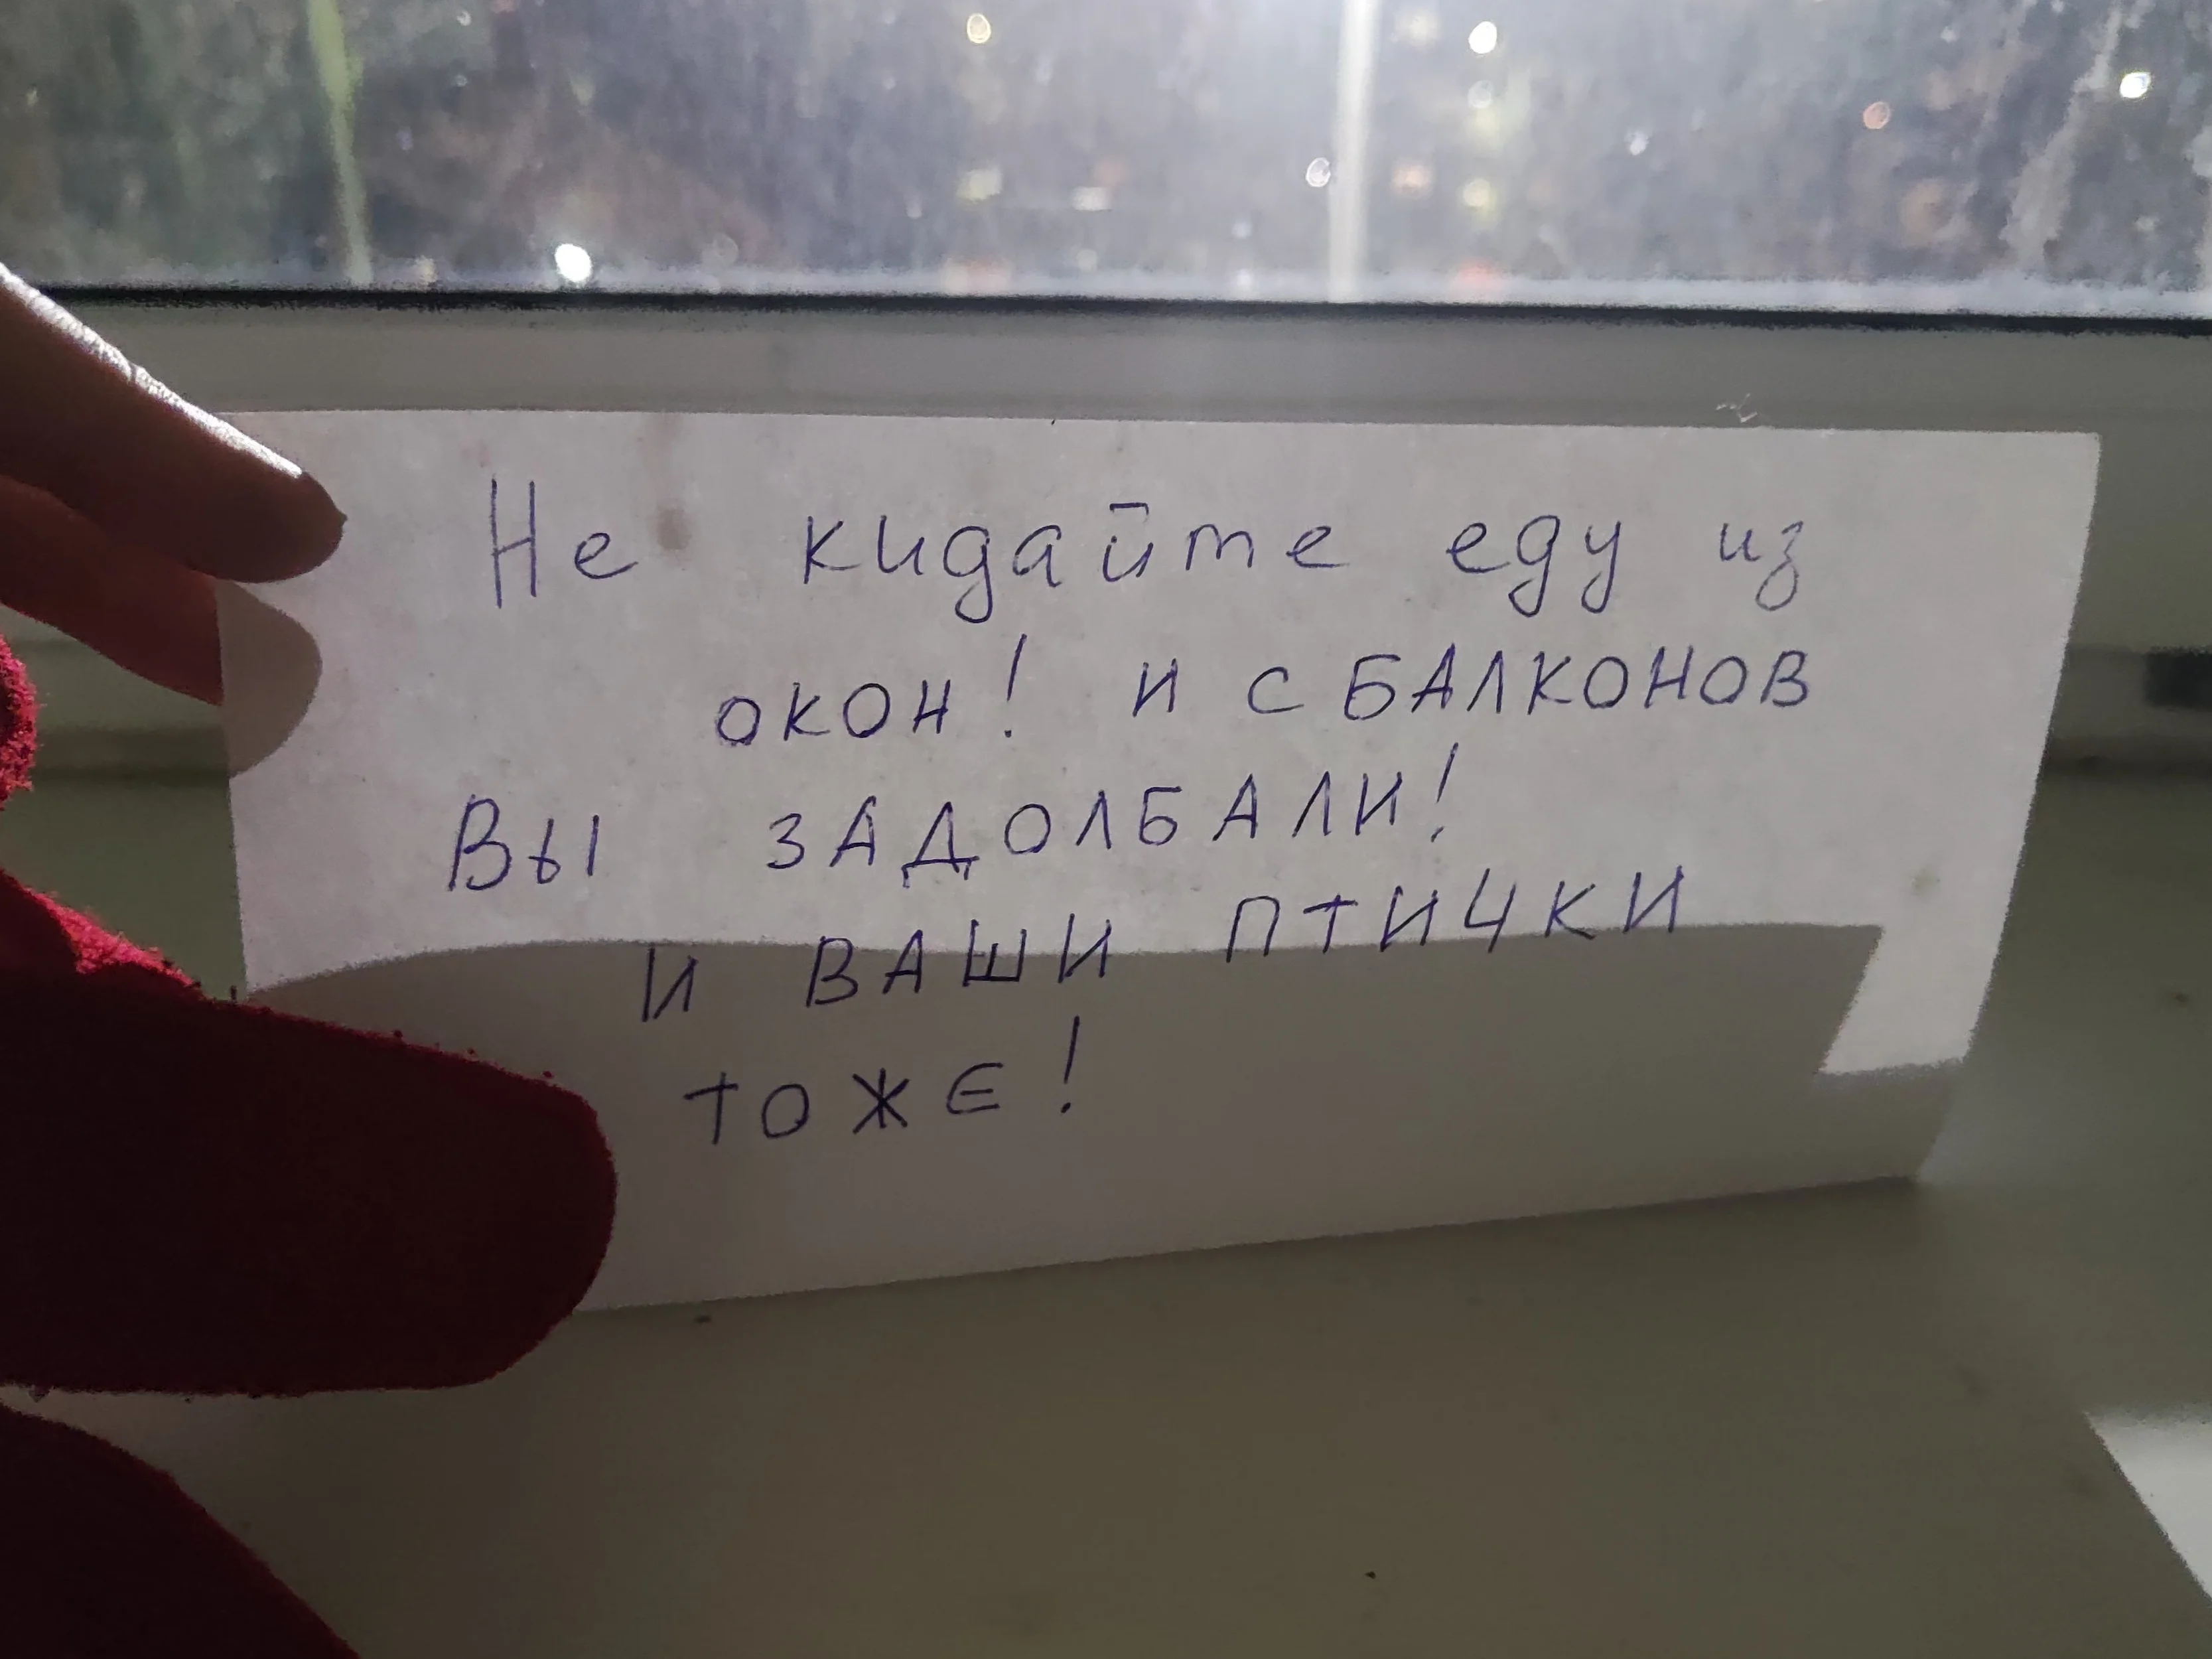 Не кидайте еду из
окон! и с БАЛКОНОВ
Вы ЗАДОЛБАЛИ!
И ВАШИ ПТИЧКИ
ТОЖЕ!